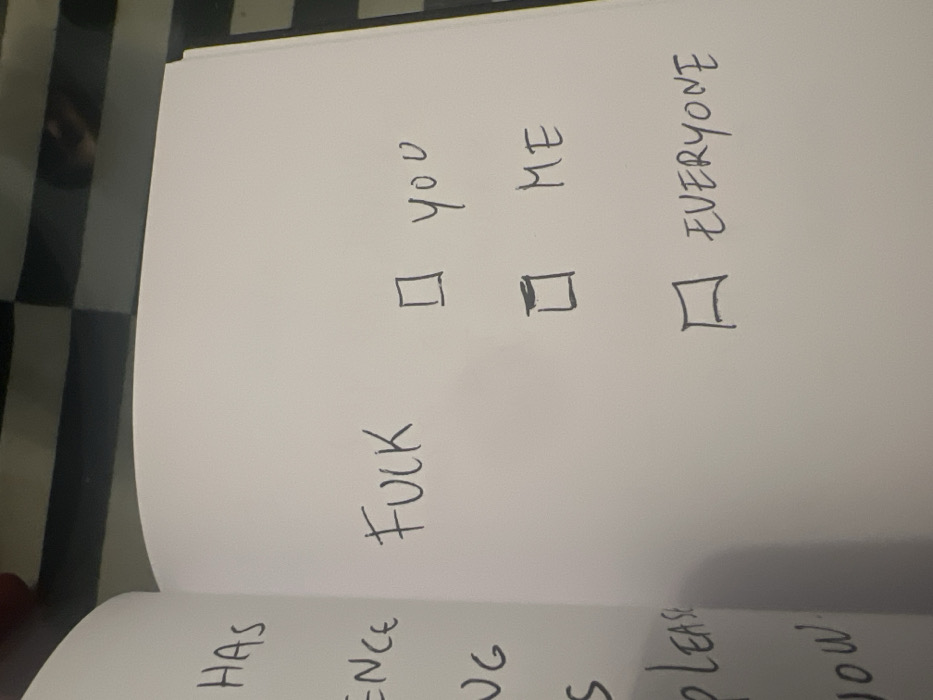 HAS
ENCE
NG
S
PLEASE
OW.
FUCK ☐ YOU
☐ ME
☐ EVERYONE